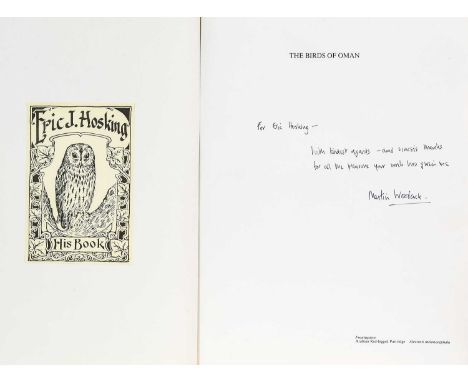 Eric J. Hosking
His Book
THE BIRDS OF OMAN
For Eric Hosking —
With kindest regards — and sincere thanks
for all the pleasure your work has given me
Martin Woodcock.
Arabian Red-legged Partridge Alectoris melanocephala